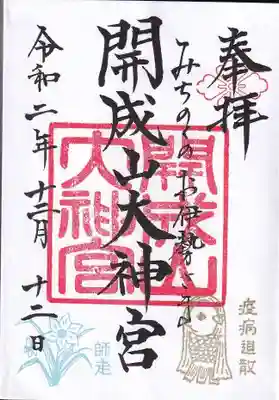 奉拝
みちのくのお伊勢さま
開成山大神宮
開成山大神宮
令和二年十二月十二日
疫病退散
師走